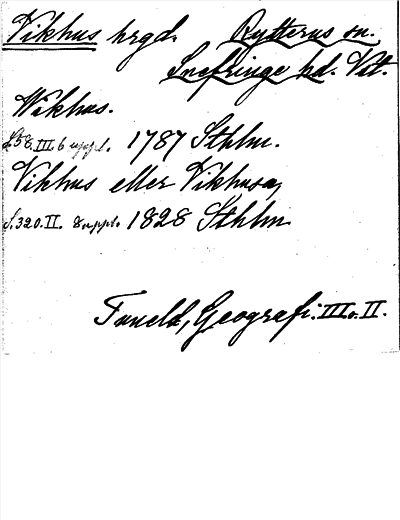 Vikhus hrgd. Rytterns sn.
Snefringe hd. Vstl.
Wikhus.
S. 58. III. 6 uppl. 1787 Sthlm.
Vikhus eller Vikhusa,
S. 320. II. 8 uppl. 1828 Sthlm
Tuneld, Geografi. III o. II.